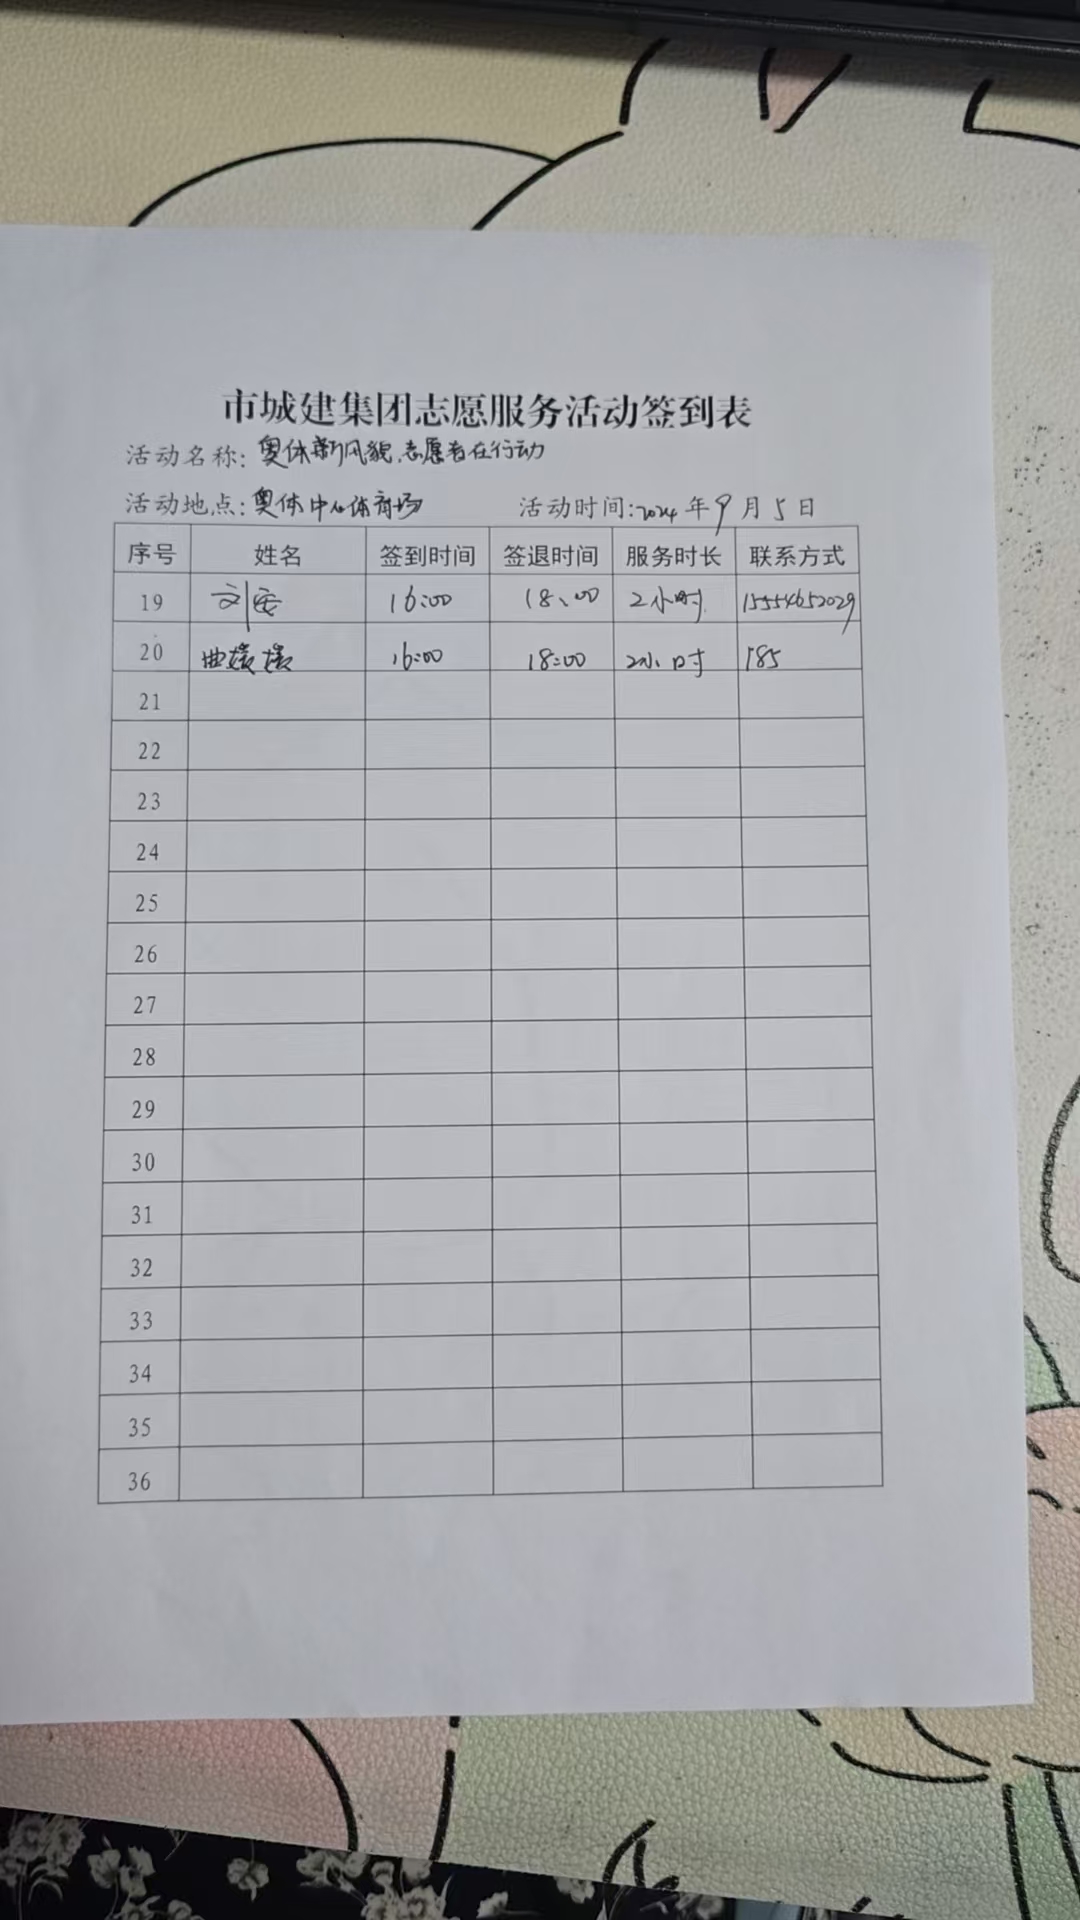 市城建集团志愿服务活动签到表
活动名称:奥体新风貌,志愿者在行动
活动地点:奥体中心体育场 活动时间:2024年9月5日
序号 姓名 签到时间 签退时间 服务时长 联系方式
19 刘 16:00 18:00 2小时 15554652029
20 曲媛媛 16:00 18:00 2小时 185
21
22
23
24
25
26
27
28
29
30
31
32
33
34
35
36